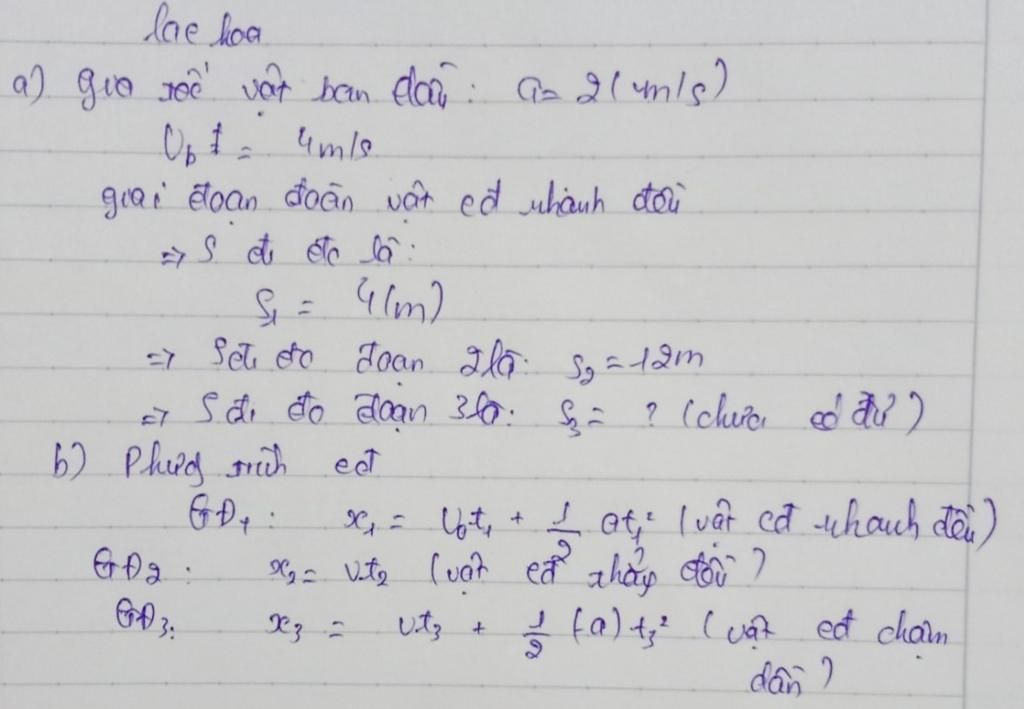 a) gia tốc vật ban đầu: a = 2 (m/s)
4m/s
giai đoạn đoàn vật cđ nhành đều
=> S đi đc là:
S₁ = 4(m)
=> S đi đc đoạn 2 là: S₂ = 12m
=> S đi đc đoạn 3 là: S₃ = ? (chưa có đủ)
b) Phương trình cđ
GĐ₁: x₁ = U₀t₁ + 1/2 at₁² (vật cđ nhanh đều)
GĐ₂: x₂ = v.t₂ (vật cđ đều)
GĐ₃: x₃ = vt₃ + 1/2 (-a) t₃² (vật cđ chậm
dần)